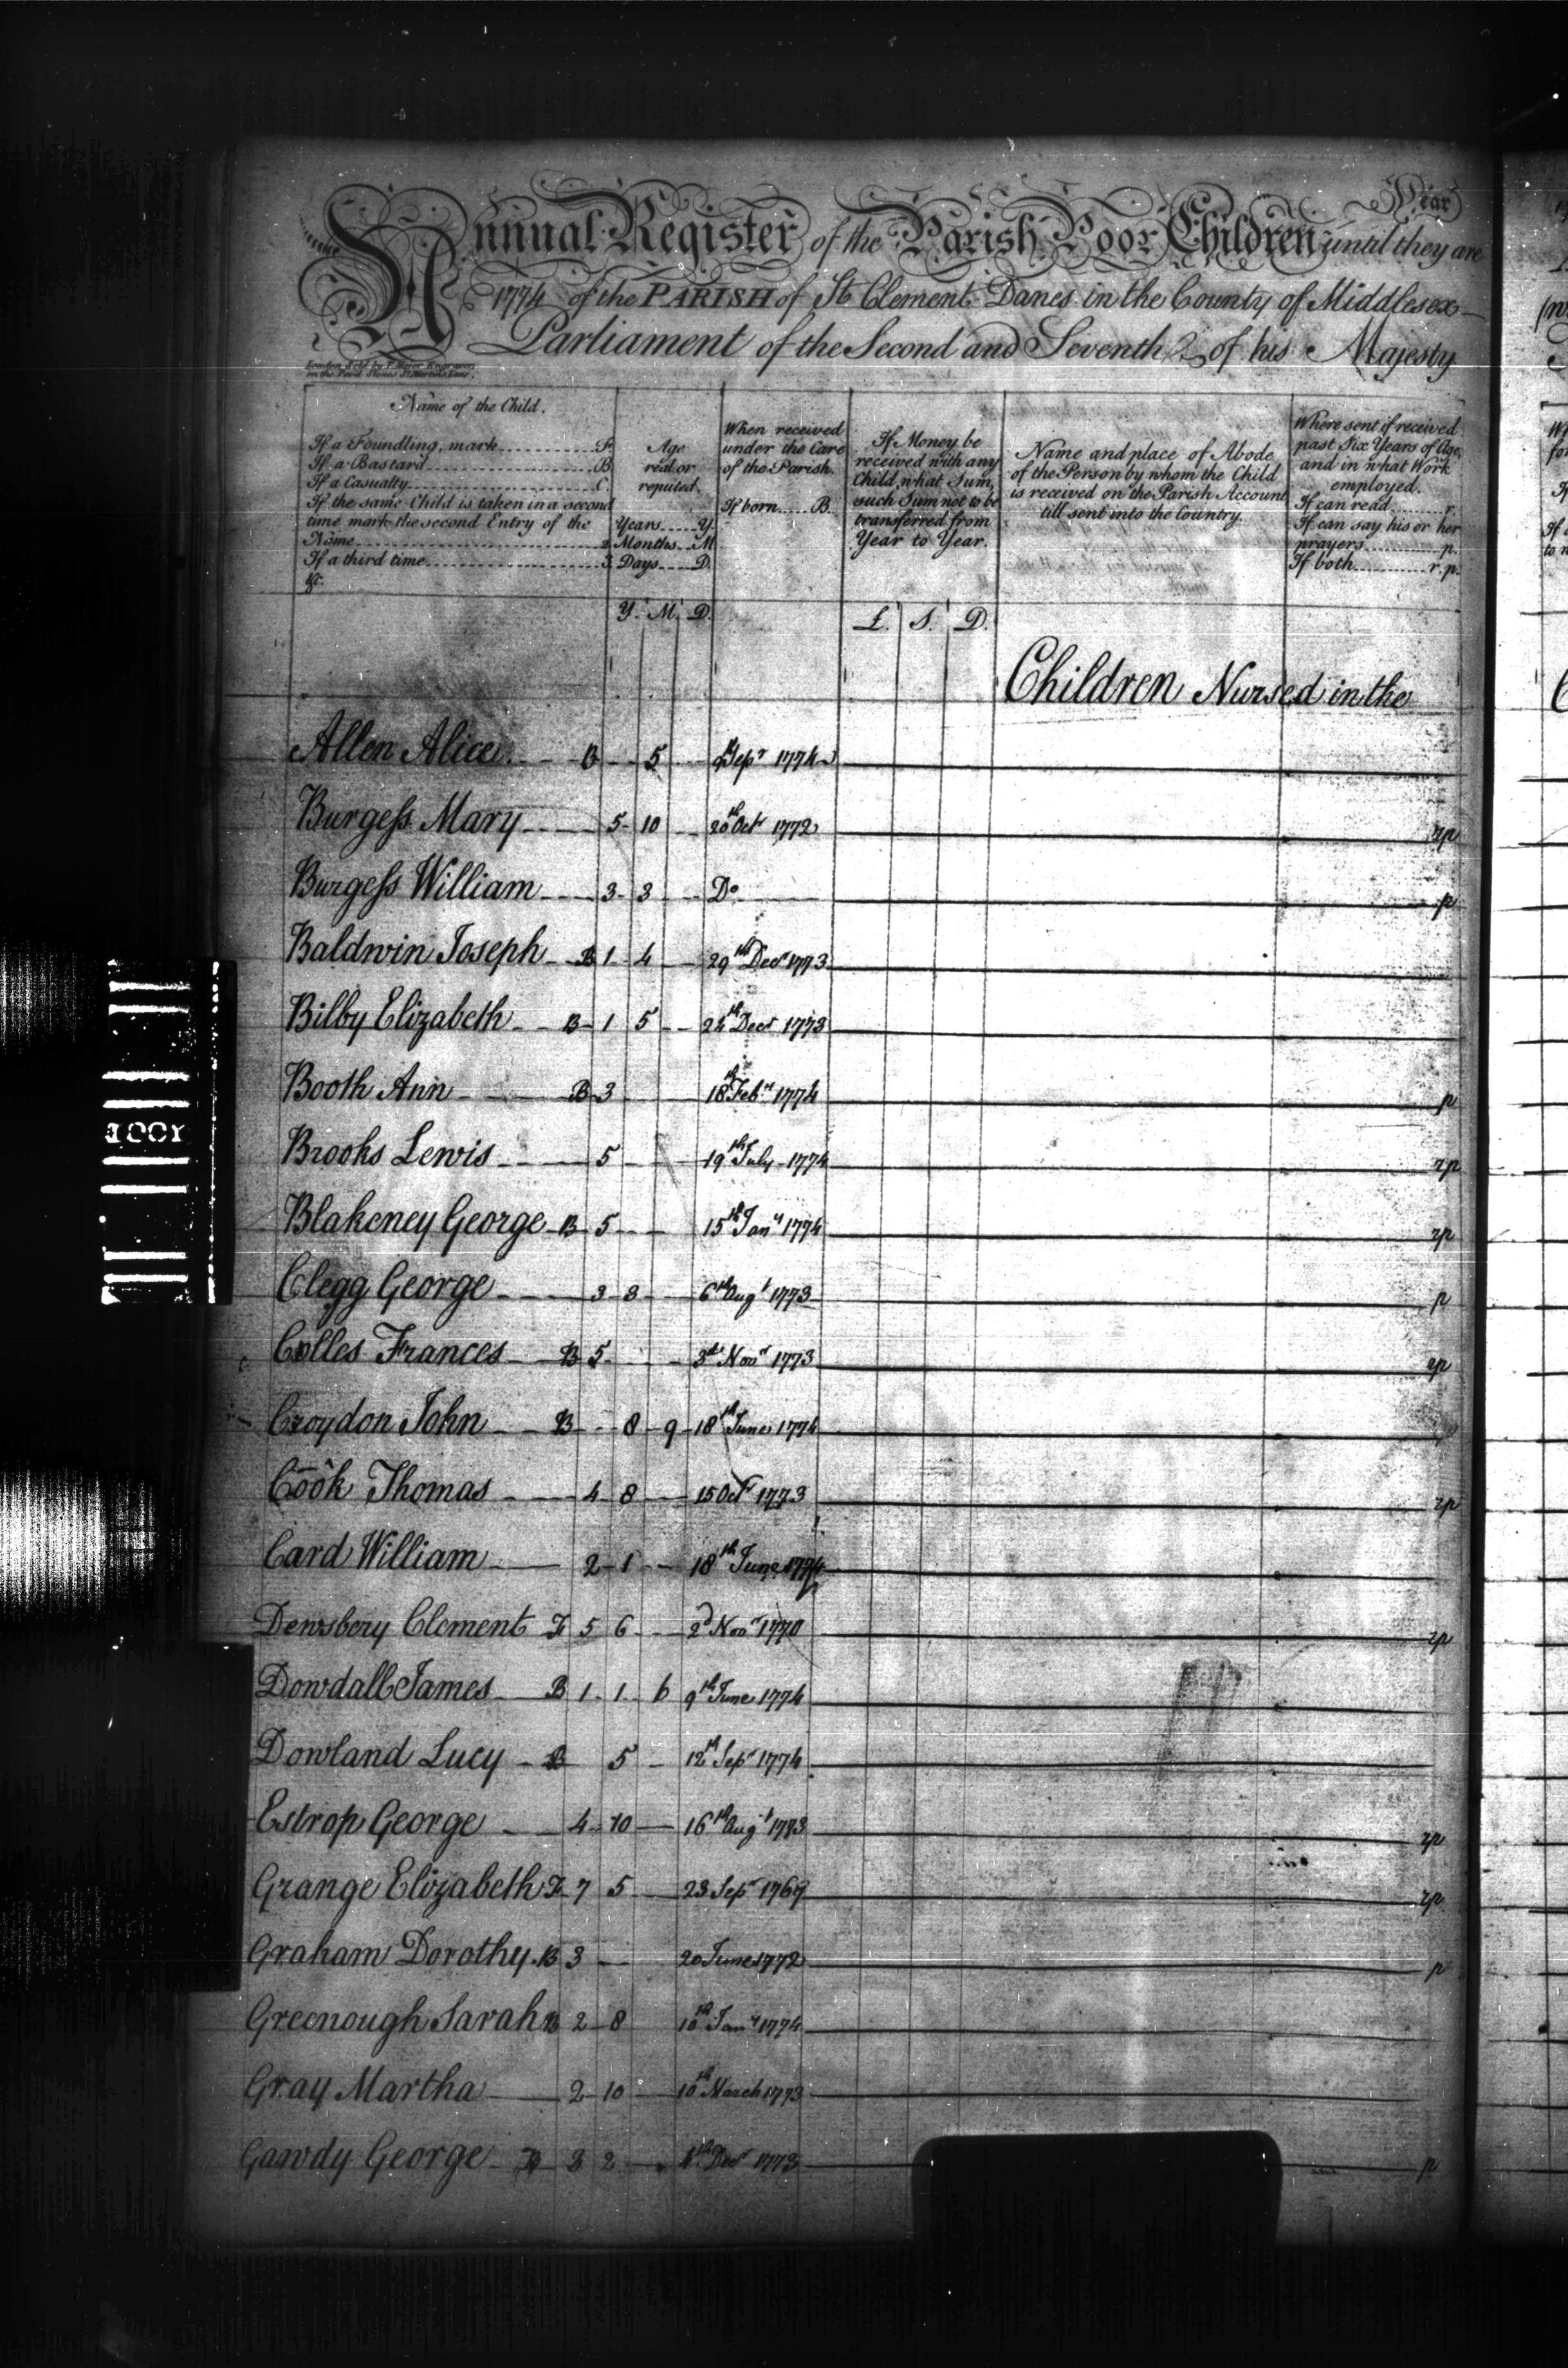 Year
Annual Register of the Parish Poor Children until they are
1774 of the PARISH of St Clement Danes in the County of Middlesex
Parliament of the Second and Seventh of his Majesty
Name of the Child.
If a Foundling, mark F.
If a Bastard B.
If a Casualty C.
If the same Child is taken in a second
time mark the second Entry of the
Name 2.
If a third time 3.
&c.
Age
real or
reputed.
Years Y.
Months M.
Days D.
When received
under the Care
of the Parish.
If born B.
If Money be
received with any
Child, what Sum,
such Sum not to be
transferred from
Year to Year.
Name and place of Abode
of the Person by whom the Child
is received on the Parish Account
till sent into the Country.
Where sent if received
past Six Years of Age,
and in what Work
employed.
If can read r.
If can say his or her
prayers p.
If both r.p.
Y. M. D. £. S. D.
Children Nursed in the
Allen Alice B 5 Sepr 1774
Burgess Mary 5 10 20th Octr 1772 rp
Burgess William 3 3 Do p
Baldwin Joseph B 1 4 29th Decr 1773
Bilby Elizabeth B 1 5 24th Decr 1773
Booth Ann B 3 18th Feby 1774 p
Brooks Lewis 5 19th July 1774 rp
Blakeney George B 5 15th Jany 1774 rp
Clegg George 3 8 6th Augt 1773 p
Colles Frances B 5 3d Novr 1773 rp
Croydon John B 8 9 18th June 1774
Cook Thomas 4 8 15 Octr 1773 rp
Card William 2 1 18th June 1774
Dewsbery Clement F 5 6 2d Novr 1770 rp
Dowdall James B 1 1 6 9th June 1774
Dowland Lucy B 5 12th Sepr 1774
Estrop George 4 10 16th Augt 1773 rp
Grange Elizabeth F 7 5 23 Sepr 1767 rp
Graham Dorothy B 3 20 June 1772 p
Greenough Sarah B 2 8 10th Jany 1774
Gray Martha 2 10 10th March 1773
Gawdy George 3 2 Decr 1773 p